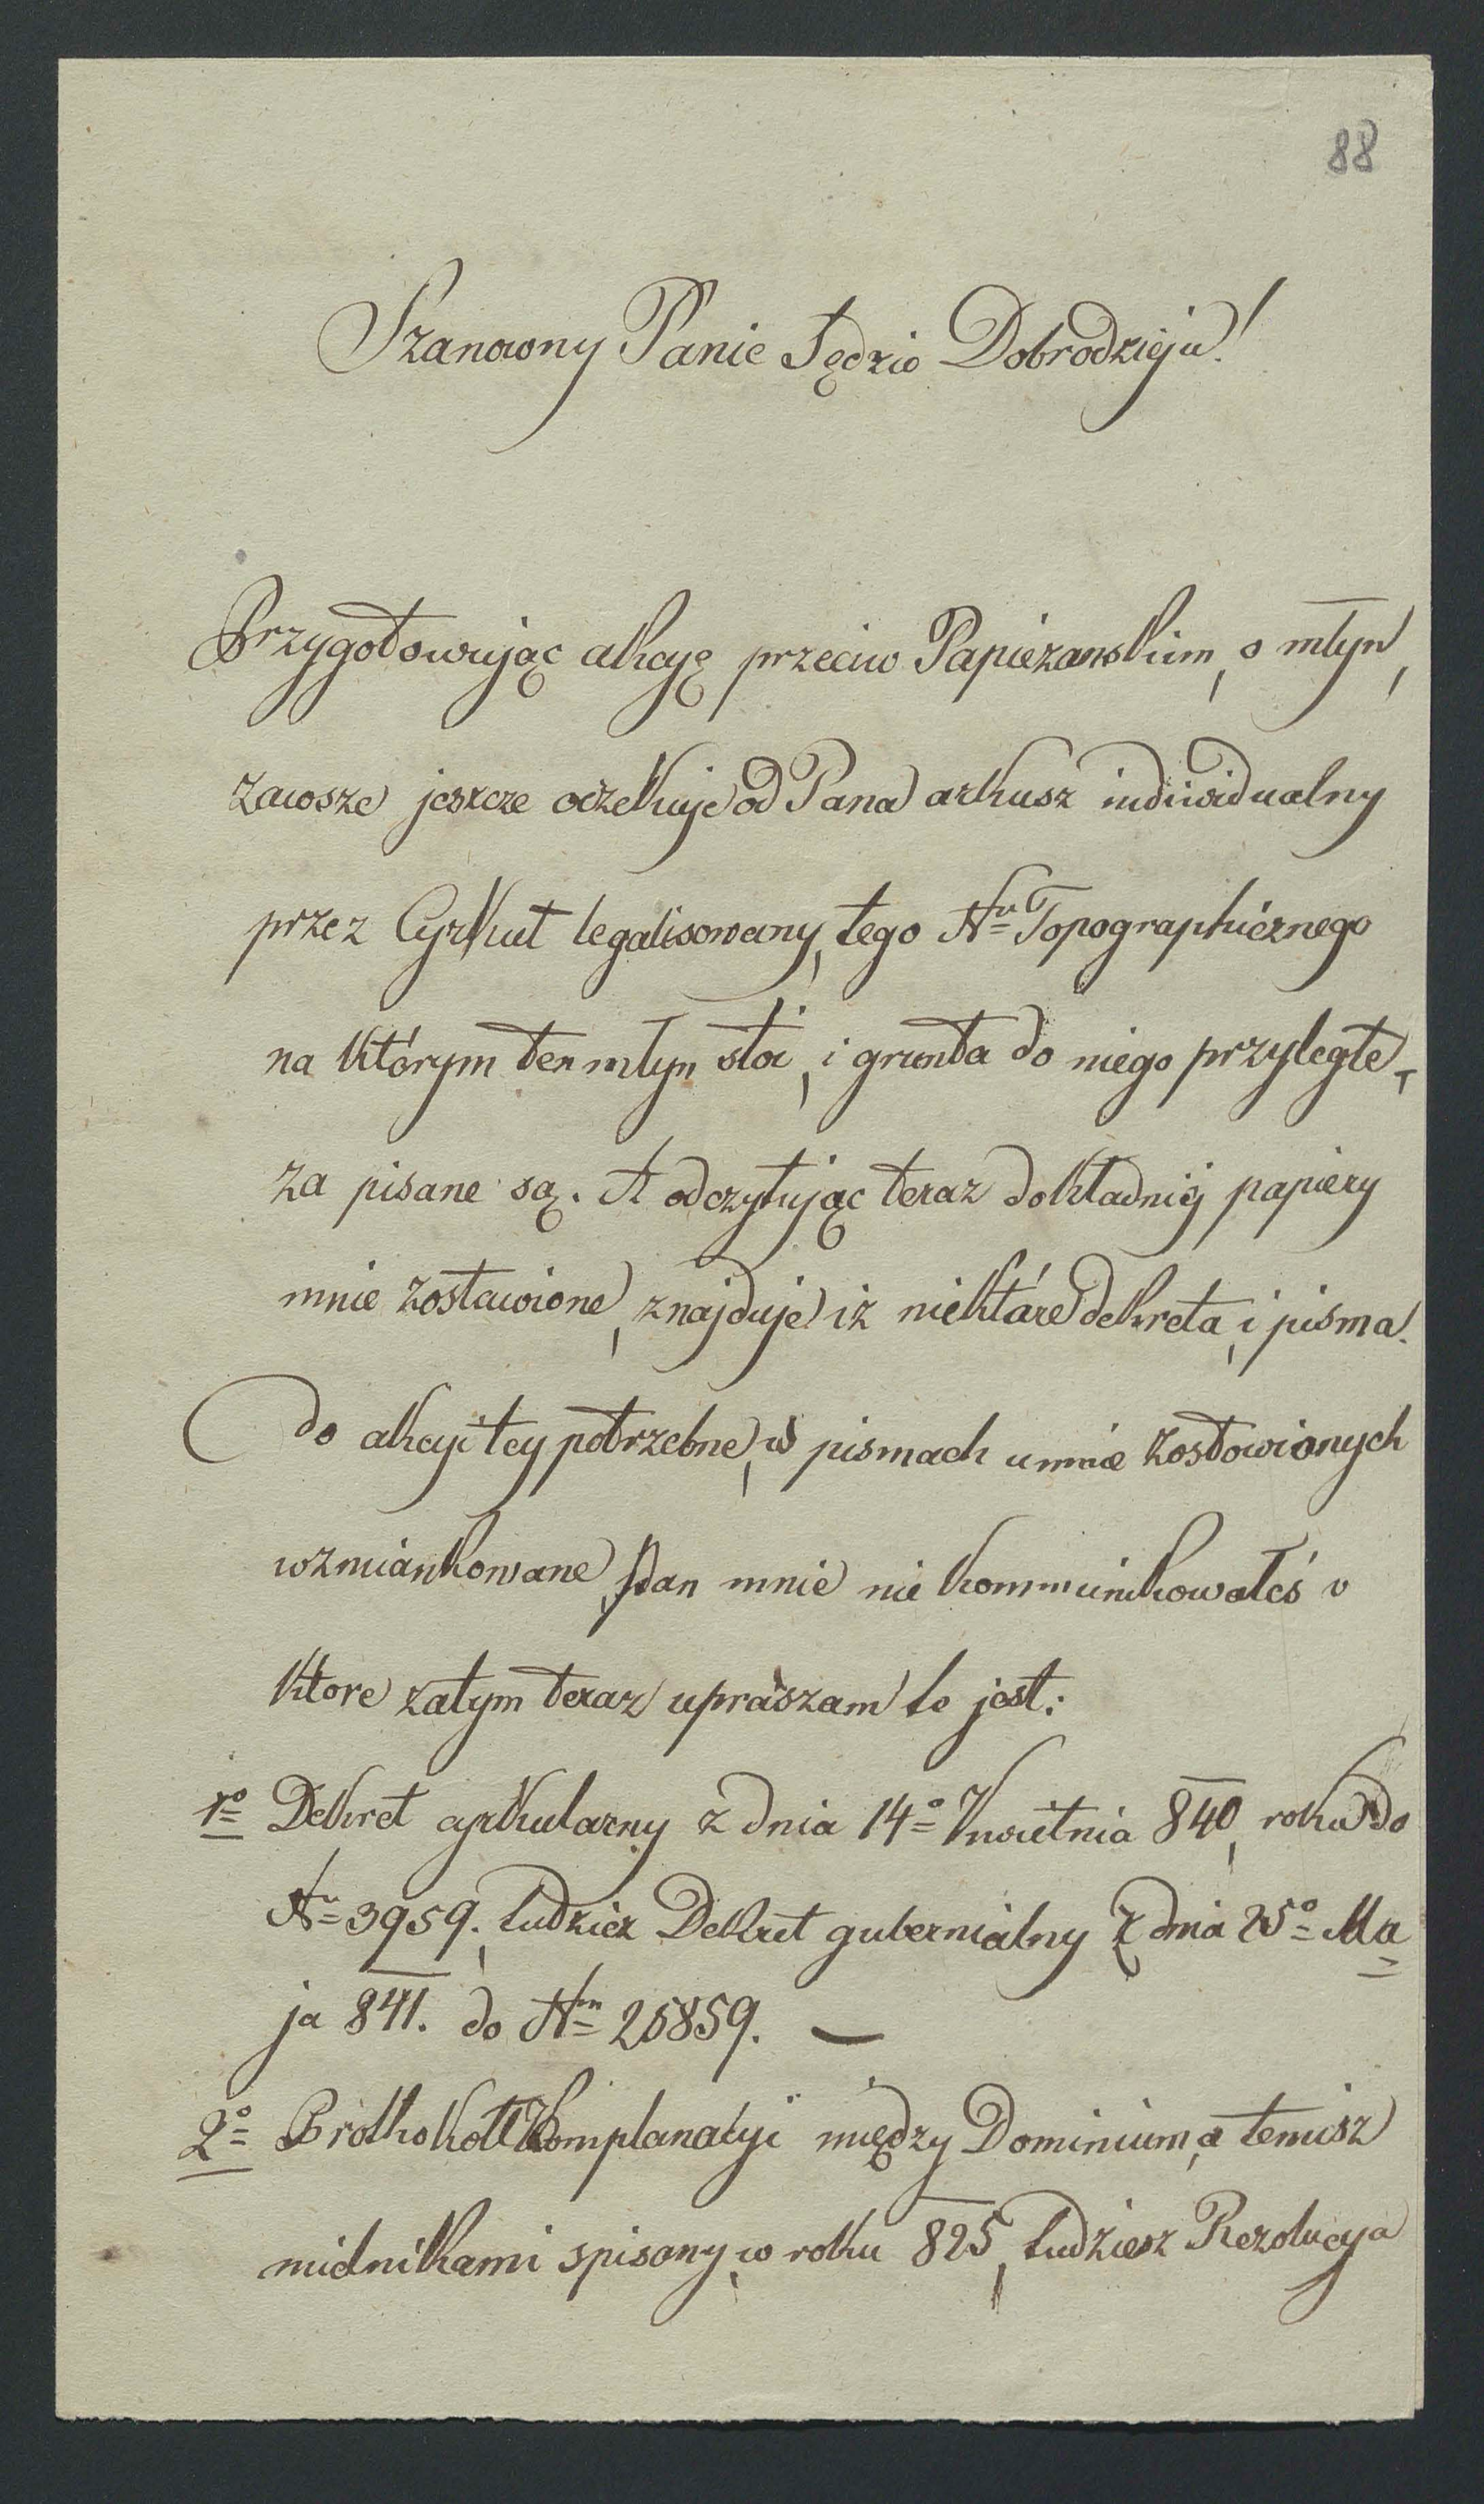 88
Szanowny Panie Sędzio Dobrodzieju!
Przygotowując akcyę przeciw Papieżanskim, o młyn,
zawsze jeszcze oczekuje od Pana arkusz indiwidualny
przez Cyrkuł legalisowany, tego Nru Topographicznego
na którym ten młyn stoi, i grunta do niego przyległe,
za pisane są. A odczytując teraz dokładniej papiery
mnie zostawione, znajduje iż niektóre dekreta, i pisma
do akcyi tey potrzebne, w pismach u mnie zostawionych
wzmiankowane, Pan mnie nie kommunikowałeś o
ktore zatym teraz upraszam to jest:
1o Dekret cyrkularny z dnia 14o Kwietnia 840, roku do
Nr 3959. tudzież Dekret gubernialny z dnia 25o Ma=
ja 841. do Nru 25859. —
2o Protkokoł Komplanacyi między Dominium, a temisz
mielnikami spisany, w roku 825, tudziesz Rezolucya